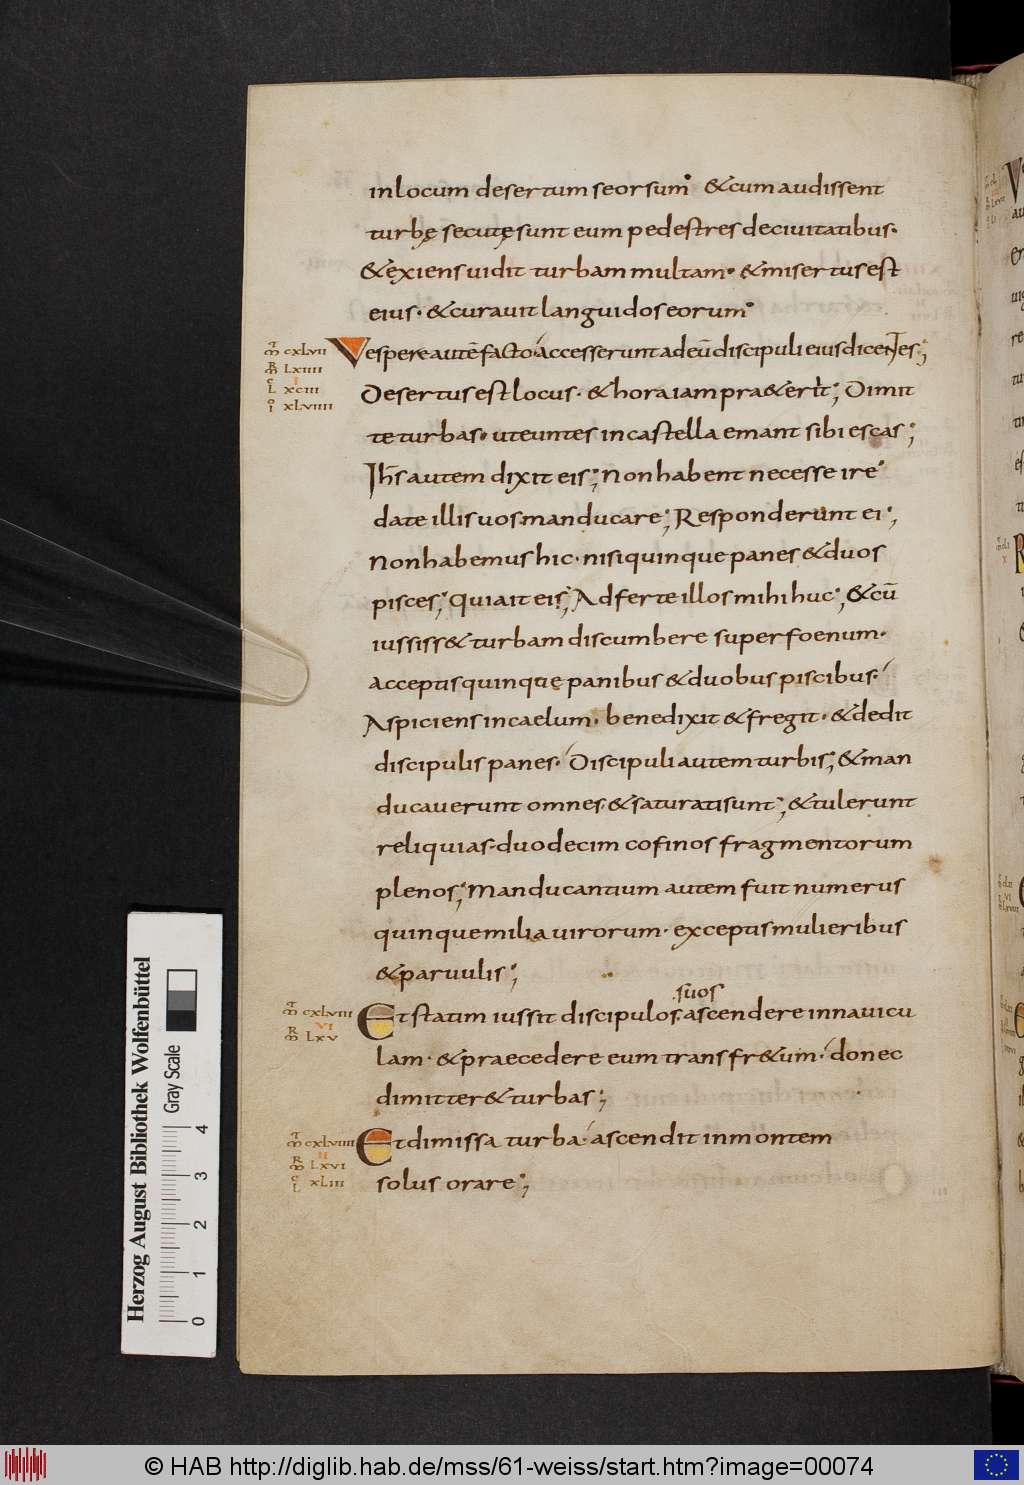 inlocum desertum seorsum. & cum audissent
turbę secutę sunt eum pedestres deciuitatibus.
& exiens uidit turbam multam. & misertus est
eius. & curauit languidos eorum.
Mᵀ CXLVII
MR LXIIII
II
Lᶜ XCIII
Iᵒ XLVIIII
Vespere autē facto. accesserunt ad eū discipuli eius dicentes;
Desertus est locus. & hora iam pra&eriit; Dimit
te turbas. ut euntes in castella emant sibi escas;
Ihs̄ autem dixit eis; Non habent necesse ire
date illis uos manducare; Responderunt ei;
Non habemus hic. nisi quinque panes & duos
pisces; Qui ait eis; Adferte illos mihi huc; & cū
iussiss& turbam discumbere super foenum.
acceptis quinque panibus & duobus piscibus.
Aspiciens in caelum. benedixit & fregit. & dedit
discipulis panes. Discipuli autem turbis; & man
ducauerunt omnes. & saturati sunt; & tulerunt
reliquias. duodecim cofinos fragmentorum
plenos; Manducantium autem fuit numerus
quinque milia uirorum. exceptis mulieribus
& paruulis;
.suos
Mᵀ CXLVIII
VI
MR LXV
Et statim iussit discipulos. ascendere in nauicu
lam. & praecedere eum transfr&um. donec
dimitter& turbas;
Mᵀ CXLVIIII
II
MR LXVI
Lᶜ XLIII
Et dimissa turba. ascendit in montem
solus orare;
Herzog August Bibliothek Wolfenbüttel
Gray Scale
0 1 2 3 4
© HAB http://diglib.hab.de/mss/61-weiss/start.htm?image=00074